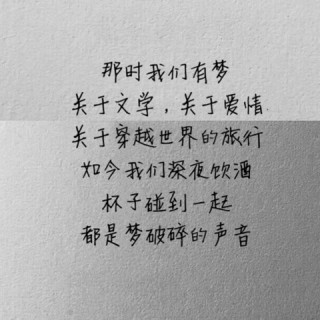 那时我们有梦
关于文学，关于爱情
关于穿越世界的旅行
如今我们深夜饮酒
杯子碰到一起
都是梦破碎的声音